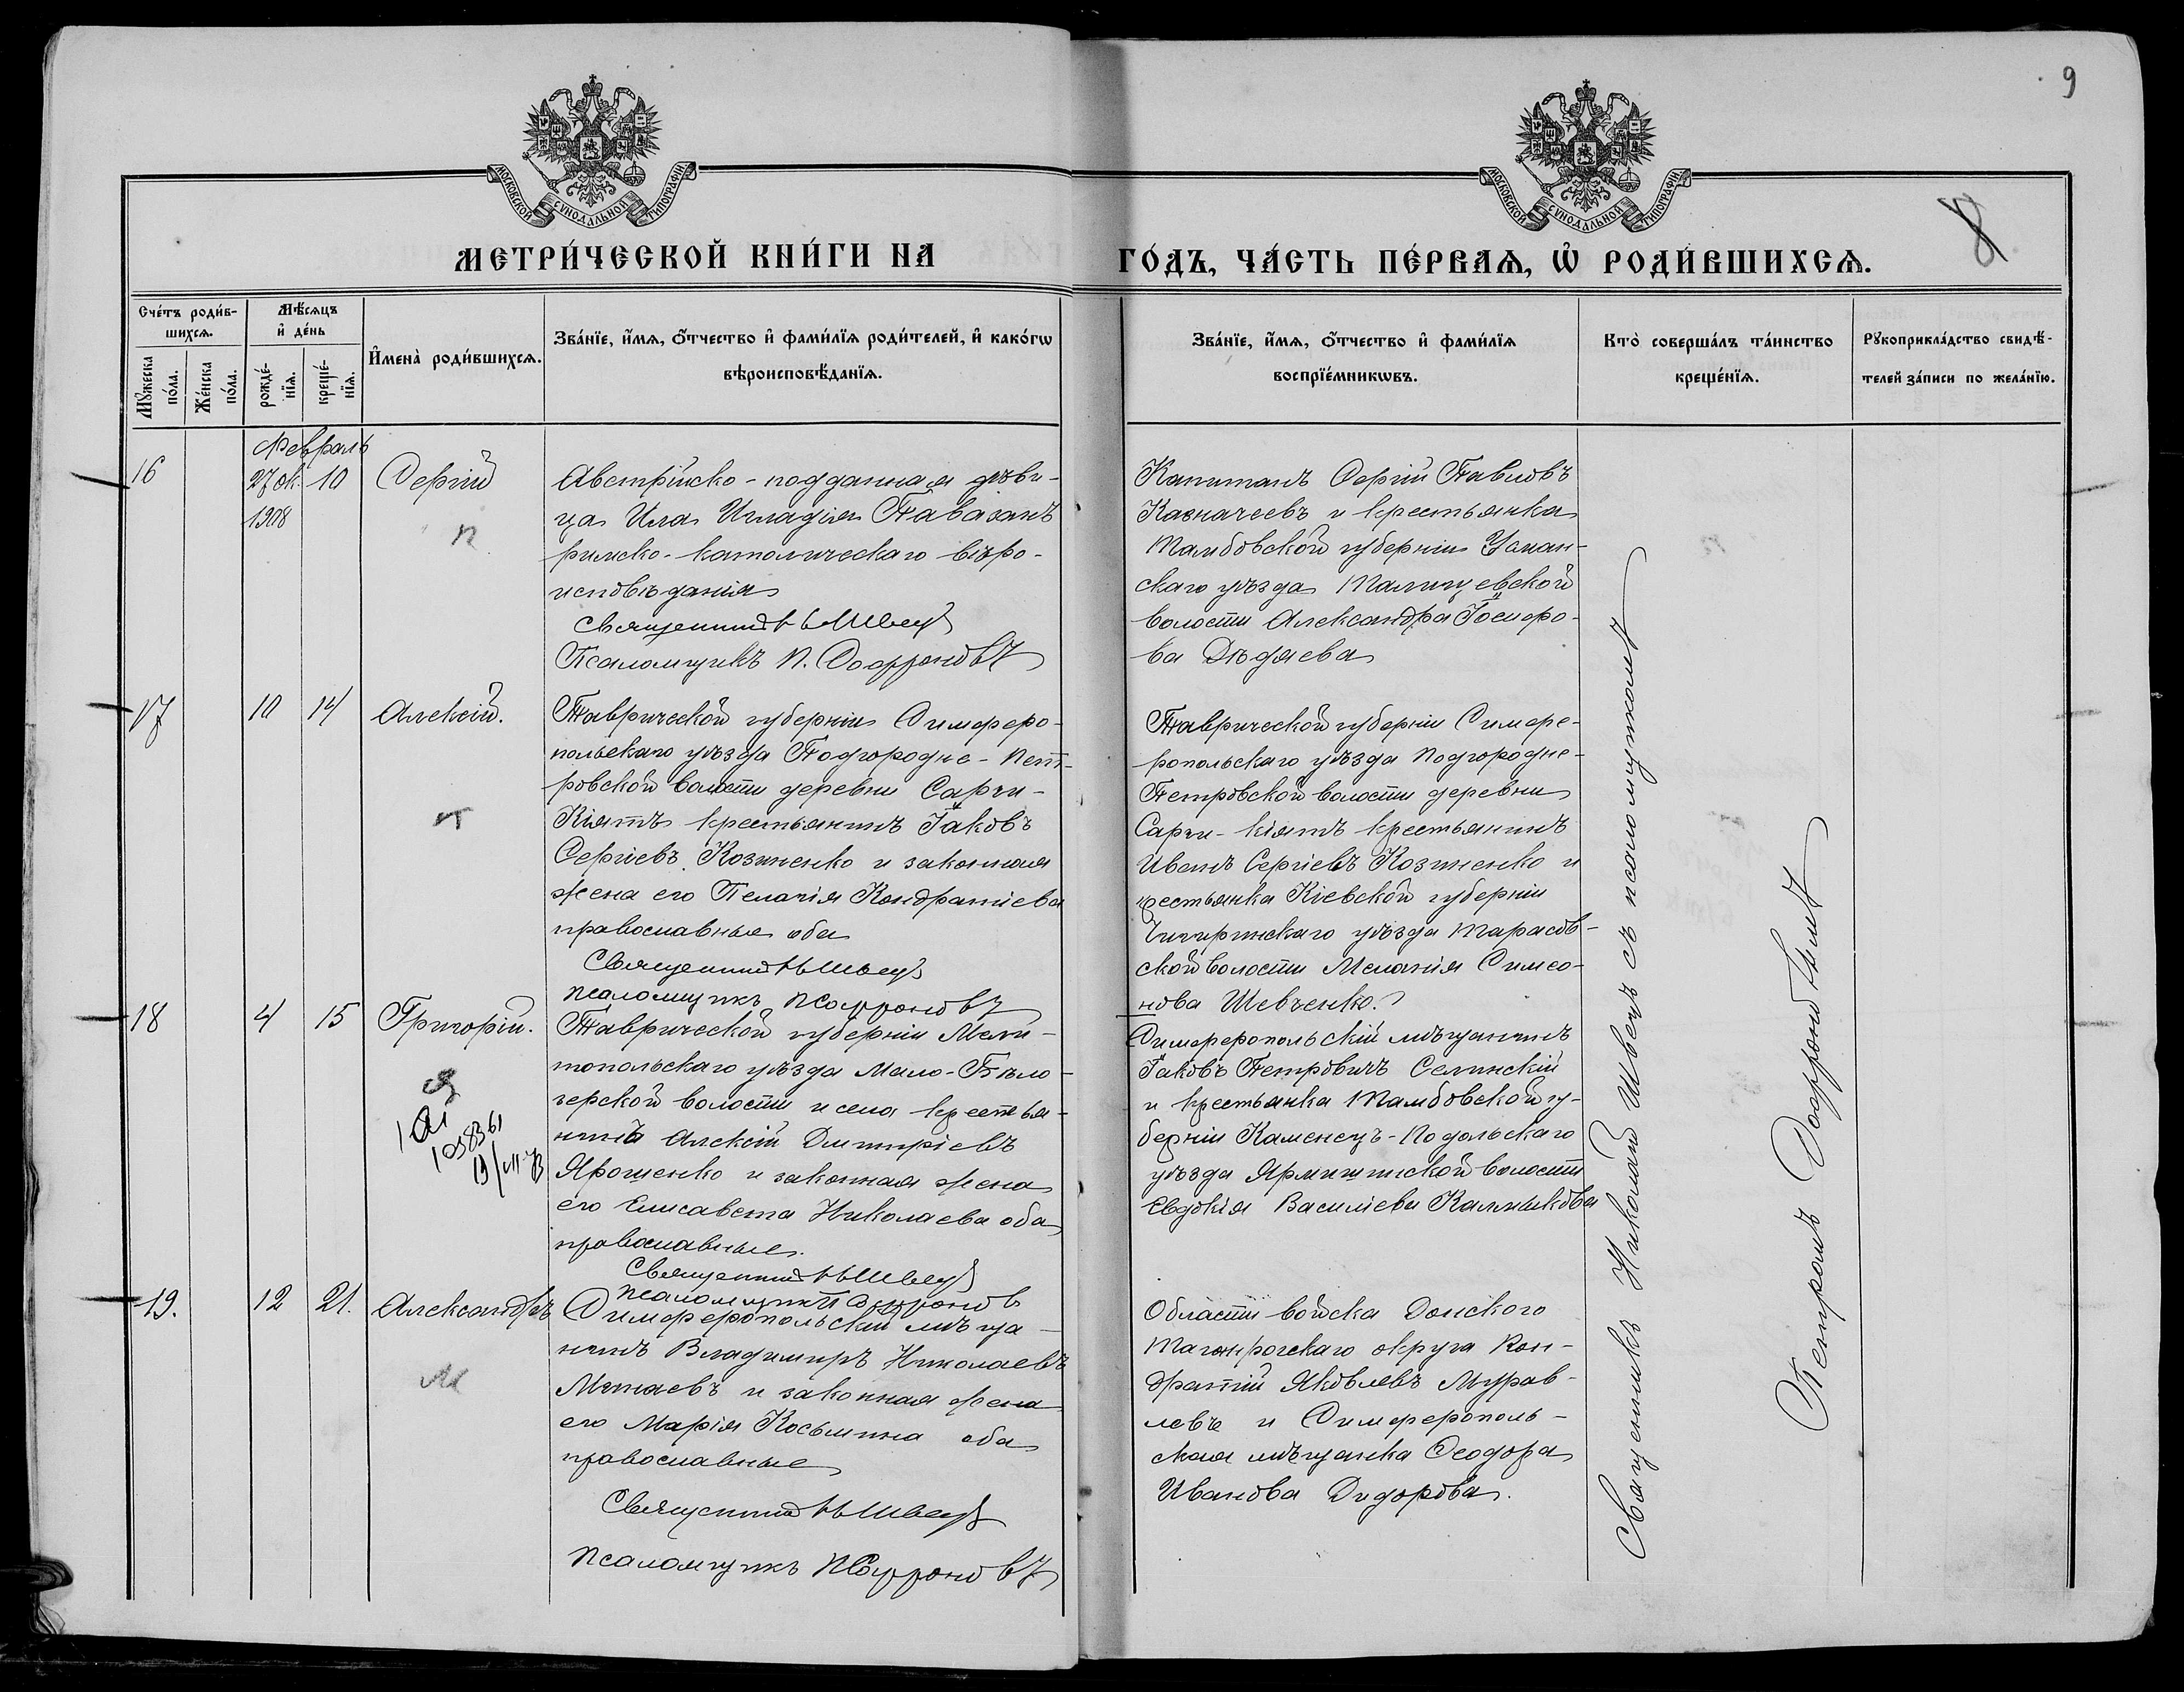 9
8
МОСКОВСКОЙ СѴНОДАЛЬНОЙ ТИПОГРАФІИ
МОСКОВСКОЙ СѴНОДАЛЬНОЙ ТИПОГРАФІИ
МЕТРИ́ЧЕСКОЙ КНИ́ГИ НА ГО́ДЪ, ЧА́СТЬ ПЕ́РВАѦ, Ѡ҆ РОДИ́ВШИХСѦ.
Сче́тъ роди́в-
шихсѧ.
Мꙋ́жеска по́ла.
Же́нска по́ла.
Мѣ́сѧцъ и҆ де́нь
рожде́-
нїѧ.
креще́-
нїѧ.
И҆мена̀ роди́вшихсѧ.
Зва́нїе, и҆́мѧ, ѻ҆́тчество и҆ фами́лїѧ роди́телей, и҆ како́гѡ
вѣроисповѣ́данїѧ.
Зва́нїе, и҆́мѧ, ѻ҆́тчество и҆ фами́лїѧ
воспрїе́мникѡвъ.
Кто̀ соверша́лъ та́инство
креще́нїѧ.
Рꙋкоприкла́дство свидѣ́-
телей за́писи по жела́нїю.
Февраль
16 27 ок. 10 Сергій
1908
п
Австрійско-подданная дѣви-
ца
римско-католическаго вѣро-
исповѣданія
Священникъ Н Швецъ
Псаломщикъ П. Софроновъ
Капитанъ Сергій Павловъ
Казначеевъ и крестьянка
Тамбовской губерніи Усман-
скаго уѣзда
волости Александра
ва Дѣдяева
17 10 14 Алексій.
Таврической губерніи Симферо-
польскаго уѣзда Подгородне-Пет-
ровской волости деревни Сарчи-
Кіятъ крестьянинъ Іаковъ
Сергіевъ Козиненко и законная
жена его Пелагія Кондратіева
православные оба
Священникъ Н Швецъ
псаломщикъ П Софроновъ
Таврической губерніи Симфе-
ропольскаго уѣзда Подгородне-
Петровской волости деревни
Сарчи-кіятъ крестьянинъ
Иванъ Сергіевъ Козиненко и
крестьянка Кіевской губерніи
Чигиринскаго уѣзда Тарасов-
ской волости Меланія Симео-
нова Шевченко.
18 4 15 Григорій.
Таврической губерніи Мели-
топольскаго уѣзда Мало-Бѣло-
зерской волости и села крестья-
нинъ Алексій Димитріевъ
Ярошенко и законная жена
его Елисавета Николаева оба
православные.
Священникъ Н Швецъ
псаломщикъ П Софроновъ
Симферопольскій мѣщанинъ
Іаковъ Петровичъ Селинскій
и крестьянка Тамбовской гу-
берніи Каменецъ-Подольскаго
уѣзда волости
Евдокія Василіева Калмыкова
19. 12 21. Александръ
Симферопольскій мѣща-
нинъ Владимиръ Николаевъ
Митаевъ и законная жена
его Марія Косьмина оба
православные
Священникъ Н Швецъ
псаломщикъ П Софроновъ
Области войска Донского
Таганрогскаго округа Кон-
дратій Яковлевъ Мурав-
левъ и Симферополь-
ская мѣщанка Ѳеодора
Иванова Дидорова.
Священникъ Николай Швецъ съ псаломщикомъ
Петромъ Софроновымъ